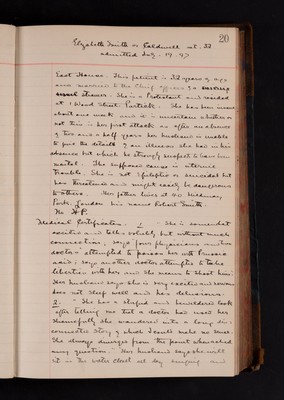 20
Elizabeth Smith or Caldwell aet. 32
admitted July. 17. 97
East House. This patient is 32 years of age
and married to the Chief officer of a
steamer. She is a Protestant and resides
at 1 Wood Street Partick. She has been insane
about one week and it is uncertain whether or
not this is her first attack as after an absence
of two and a half years her husband is unable
to give the details of an illness she had in his
absence but which he strongly suspects to have been
mental. The supposed cause is uterine
trouble. She is not epileptic or suicidal but
has threatened and might easily be dangerous
to others. Her father lives at
Park, London his name Robert Smith.
No H.P.
Medical Certificates. She is somewhat
excited and talks volubly but without much
connection, says four physicians another
doctor attempted to poison her with Prussic
acid; says another doctor attempted to take
liberties with her and she means to shoot him.
Her husband says she is very excited and
does not sleep well and has delusions.
2. "She has a stupid and bewildered look
after telling me that a doctor had used her
shamefully she wandered into a long dis-
connected story of which I could make no sense.
She always diverges from the point when asked
any question. Her husband says she will
sit in the water closet all day singing and